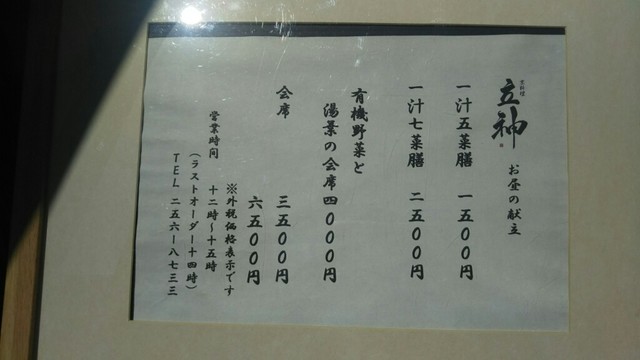 京料理
立神
お昼の献立
一汁五菜膳 一五〇〇円
一汁七菜膳 二五〇〇円
有機野菜と
湯葉の会席四〇〇〇円
会席 三五〇〇円
六五〇〇円
※外税価格表示です
営業時間 十二時〜十五時
(ラストオーダー十四時)
TEL 二五六ー八七三三